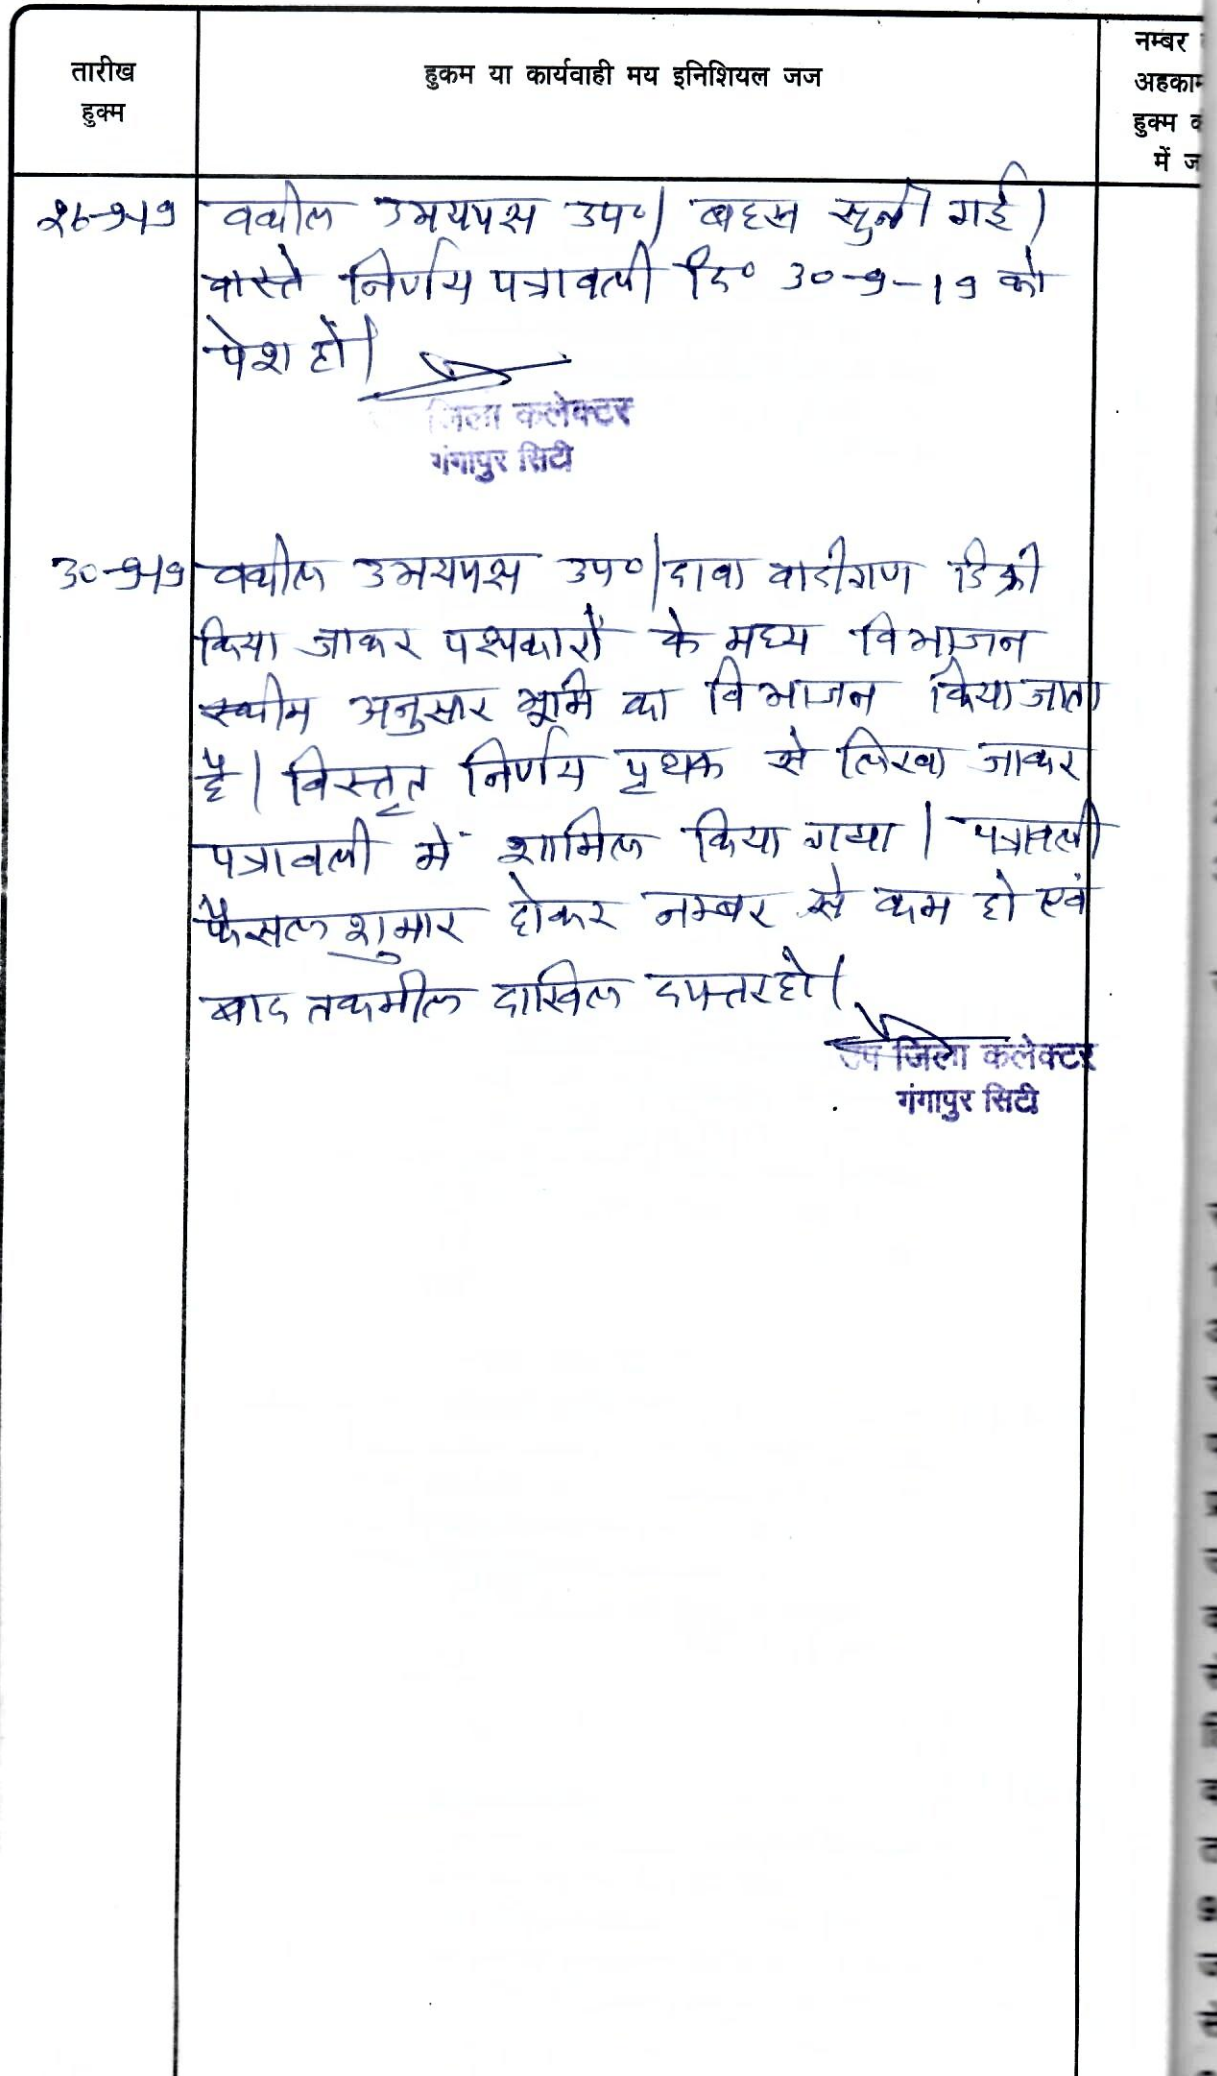 तारीख
हुक्म
हुकम या कार्यवाही मय इनिशियल जज
नम्बर
अहकाम
हुक्म
में
26-9-19 वकील उभयपक्ष उप०। बहस सुनी गई।
वास्ते निर्णय पत्रावली दि० 30-9-19 को
पेश हो।
जिला कलेक्टर
गंगापुर सिटी
30-9-19 वकील उभयपक्ष उप०। दावा वादीगण डिक्री
किया जाकर पक्षकारों के मध्य विभाजन
स्कीम अनुसार भूमि का विभाजन किया जाता
है। विस्तृत निर्णय पृथक से लिखा जाकर
पत्रावली में शामिल किया गया। पत्रावली
फैसल शुमार होकर नम्बर से कम हो एवं
बाद तकमील दाखिल दफ्तर हो।
उप जिला कलेक्टर
गंगापुर सिटी